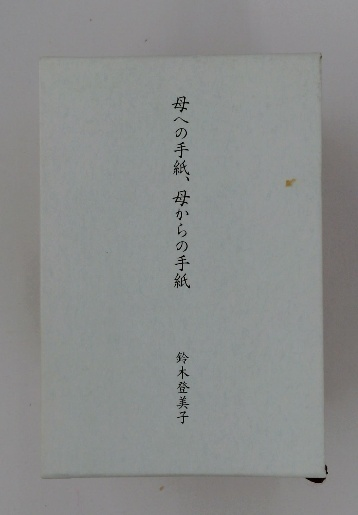 母への手紙、母からの手紙
鈴木登美子